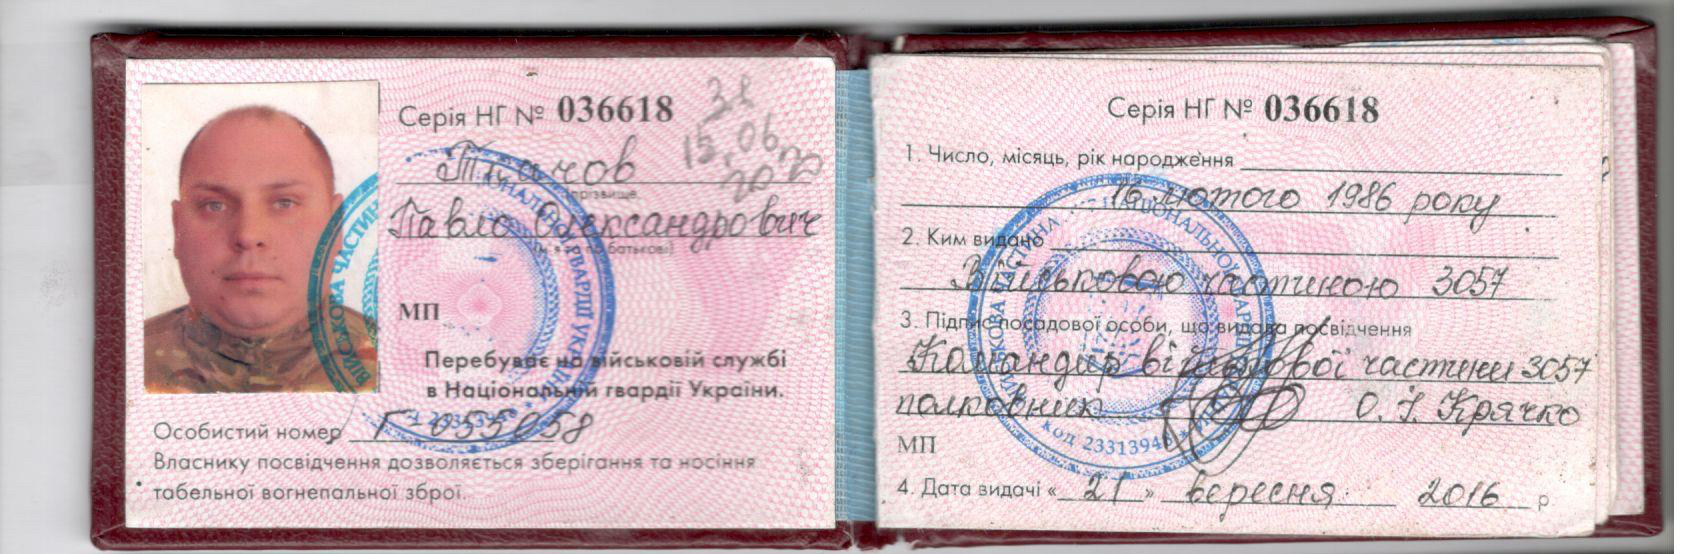 Серія НГ № 036618
31
15.06
2020
Ткачов
прізвище
Павло Олександрович
(ім'я та по батькові)
МП
Перебуває на військовій службі
в Національній гвардії України.
Особистий номер Г-055058
Власнику посвідчення дозволяється зберігання та носіння
табельної вогнепальної зброї.
Серія НГ № 036618
1. Число, місяць, рік народження
16 лютого 1986 року
2. Ким видано
Військовою частиною 3057
3. Підпис посадової особи, що видала посвідчення
Командир військової частини 3057
полковник О. І. Крячко
МП
код 23313945
4. Дата видачі « 21 » вересня 2016 р